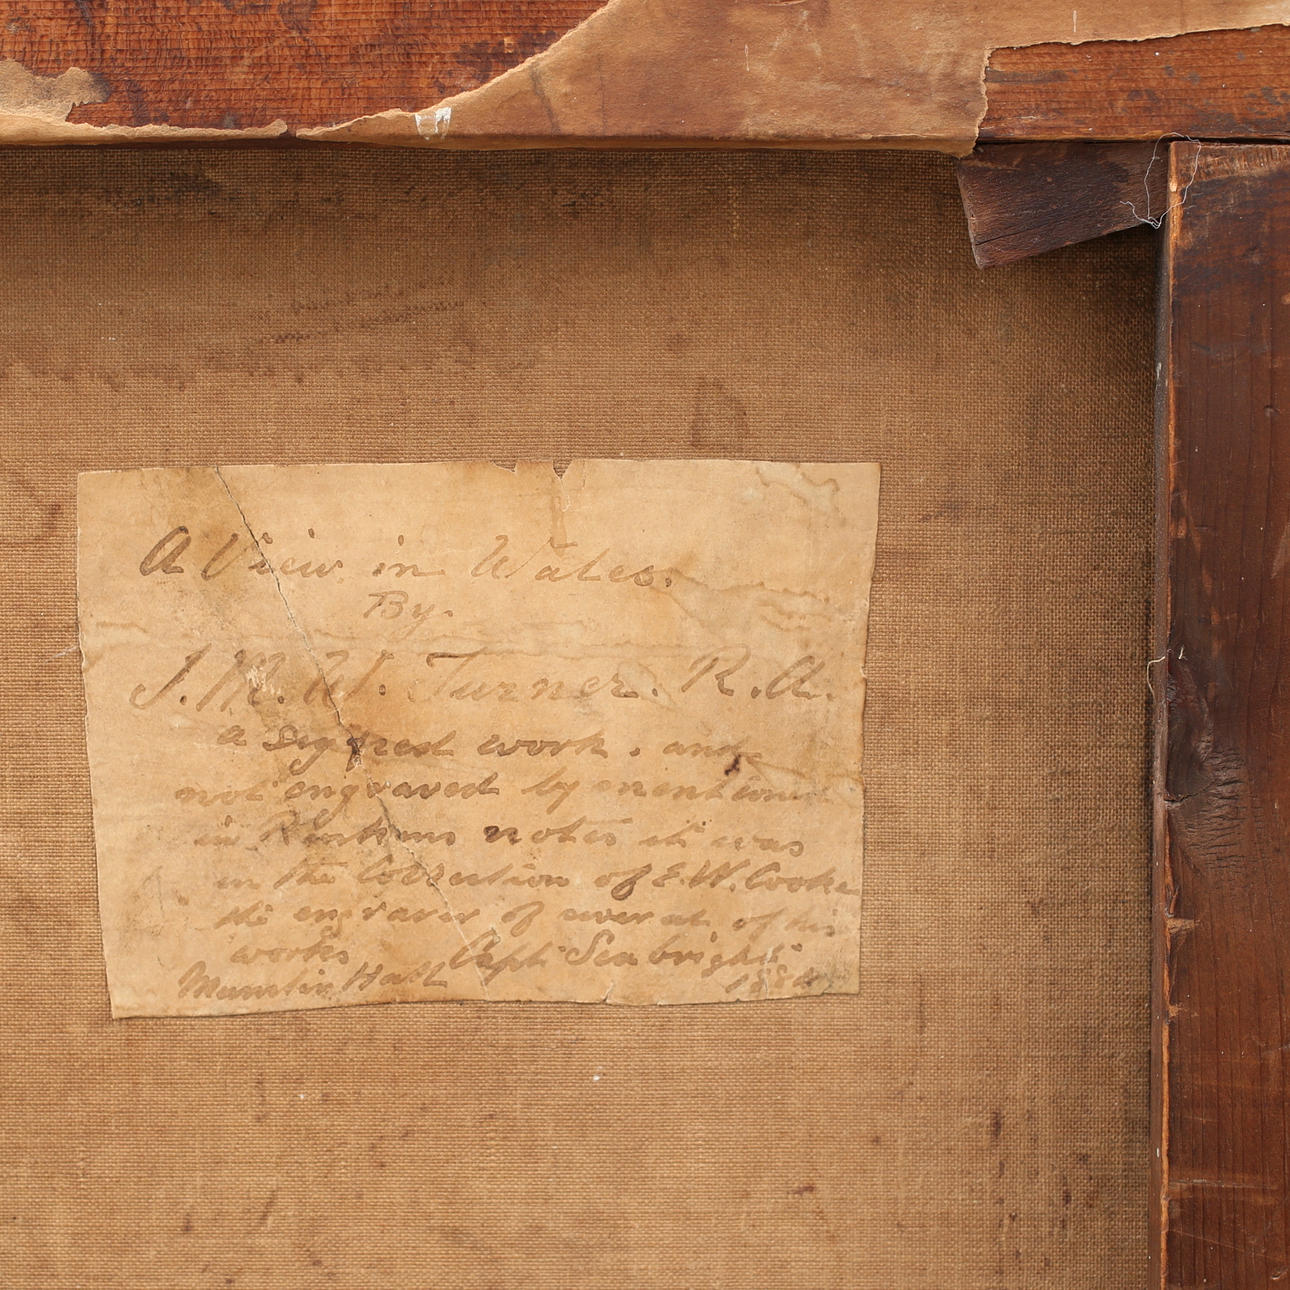 A View in Wales.
By.
J. M. W. Turner. R. A.
a signed work. and
not engraved by mentioned
in Ruskins notes it was
in the Collection of E. W. Cooke
the engraver of several of his
works Capt Seabright
Hall 188